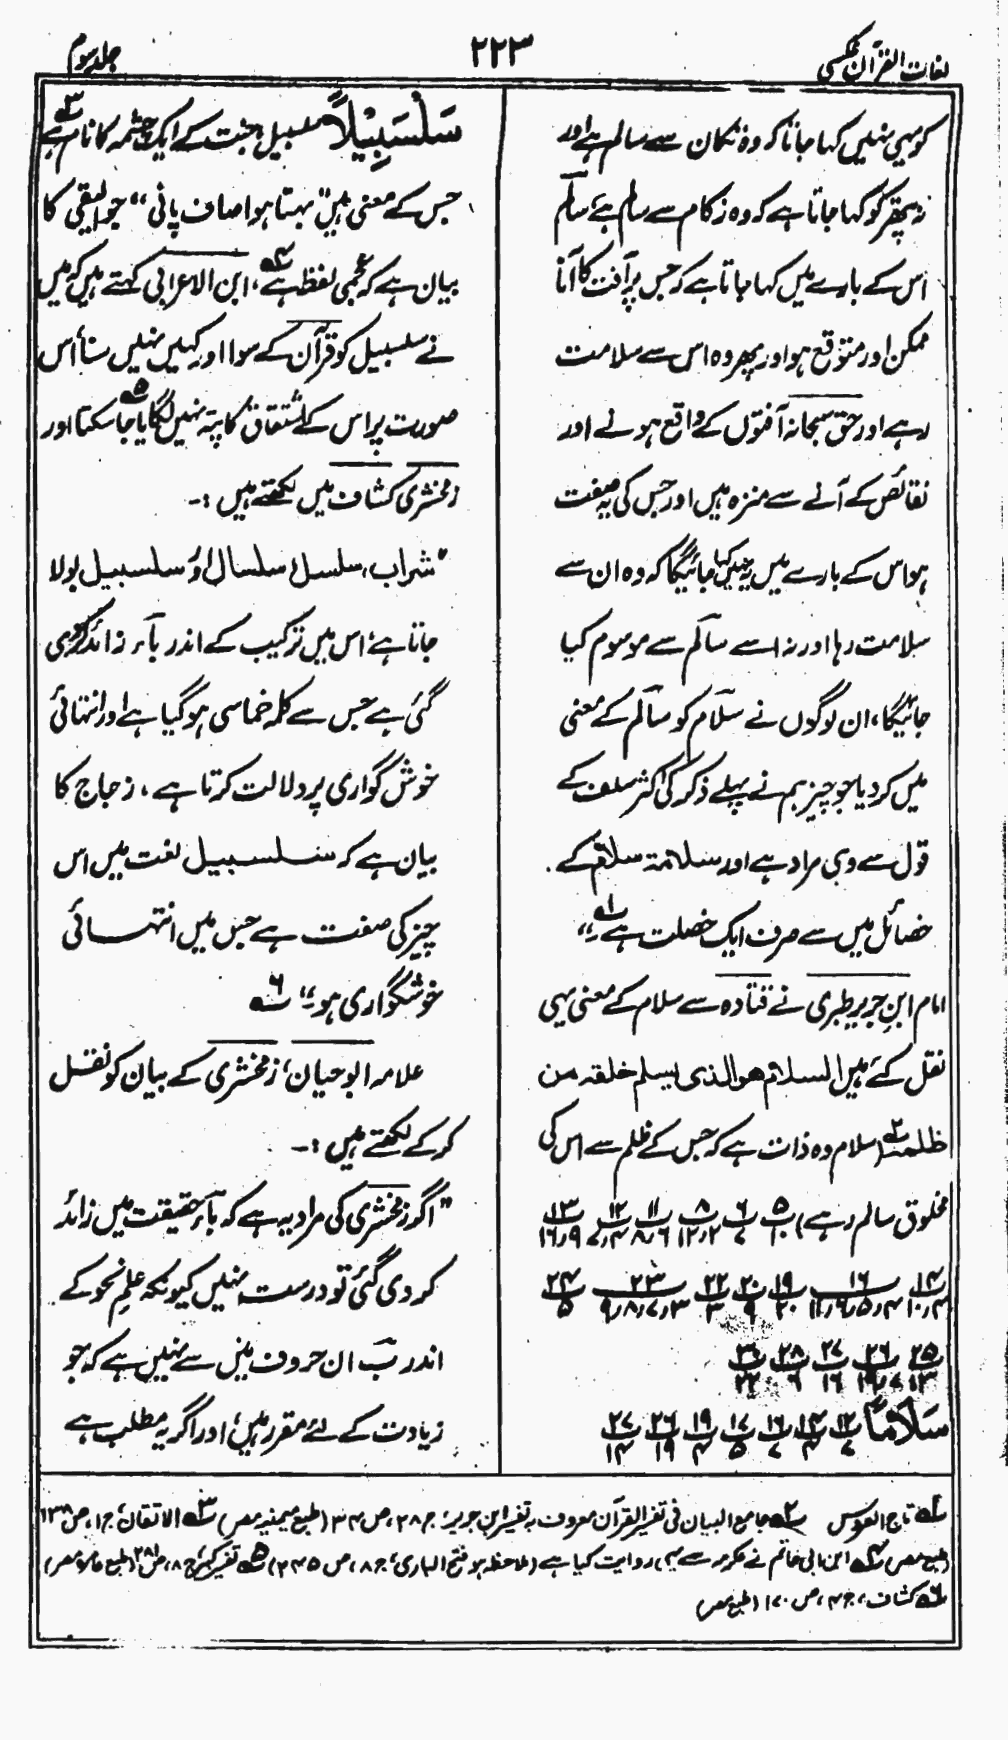 لغات القرآن عکسی
۲۲۳
جلد سوم
کو یہی نہیں کہا جاتا کہ وہ تکان سے سالم ہے اور
نہ پتھر کو کہا جاتا ہے کہ وہ زکام سے سالم ہے، سالم
اس کے بارے میں کہا جاتا ہے کہ جس پر آفت کا آنا
ممکن اور متوقع ہو اور پھر وہ اس سے سلامت
رہے اور حق سبحانہ آفتوں کے واقع ہونے اور
نقائص کے آنے سے منزہ ہیں اور جس کی یہ صفت
ہو اس کے بارے میں یہ نہیں کہا جائیگا کہ وہ ان سے
سلامت رہا اور نہ اسے سالم سے موسوم کیا
جائیگا، ان لوگوں نے سلام کو سالم کے معنی
میں کر دیا جو چیز ہم نے پہلے ذکر کی اکثر سلف کے
قول سے وہی مراد ہے اور سلامۃ سلام کے
خصائل میں سے صرف ایک خصلت ہے۔" ۱ے
امام ابن جریر طبری نے قتادہ سے سلام کے معنی یہی
نقل کئے ہیں السلام ھو الذی یسلم خلقہ من
ظلمہ ۲ے (سلام وہ ذات ہے کہ جس کے ظلم سے اس کی
مخلوق سالم رہے) ۵/۱۰ ۶/۷ ۸/۱۲٫۲ ۱۱/۸٫۶ ۱۲/۷٫۴ ۱۳/۱۶٫۹
۱۴/۱۰٫۴ ۱۶/۱۱٫۶٫۵٫۴ ۱۹/۲۰ ۲۰/۹ ۲۲/۳ ۲۳/۹٫۸٫۷٫۳ ۲۴/۵
۲۵/۱۳ ۲۶/۱۹٫۷ ۲۷/۱۶ ۲۸/۶ ۳۶/۲۲
سَلَامًا ۱۲/۷ ۱۴/۴ ۱۶/۷ ۱۷/۵ ۱۹/۴ ۲۶/۱۹ ۲۷/۱۴
سَلْسَبِيْلًا سلسبیل، جنت کے ایک چشمہ کا نام ہے ۳ے
جس کے معنی ہیں "بہتا ہوا صاف پانی" جوالیقی کا
بیان ہے کہ عجمی لفظ ہے ۴ے، ابن الاعرابی کہتے ہیں کہ میں
نے سلسبیل کو قرآن کے سوا اور کہیں نہیں سنا، اس
صورت پر اس کے اشتقاق کا پتہ نہیں لگایا جا سکتا ۵ے اور
زمخشری کشاف میں لکھتے ہیں :۔
"شراب، سلسل، سلسال اور سلسبیل بولا
جاتا ہے، اس میں ترکیب کے اندر بآء زائد کر دی
گئی ہے جس سے کلمہ خماسی ہو گیا ہے اور انتہائی
خوش گواری پر دلالت کرتا ہے، زجاج کا
بیان ہے کہ سلسبیل لغت میں اس
چیز کی صفت ہے جس میں انتہائی
خوشگواری ہو۔" ۶ے
علامہ ابوحیان، زمخشری کے بیان کو نقل
کر کے لکھتے ہیں :۔
"اگر زمخشری کی مراد یہ ہے کہ بآء حقیقت میں زائد
کر دی گئی تو درست نہیں کیونکہ علم نحو کے
اندر ب ان حروف میں سے نہیں ہے کہ جو
زیادت کے لئے مقرر ہیں، اور اگر یہ مطلب ہے
۱ے تاج العروس ۲ے جامع البیان فی تفسیر القرآن معروف بہ تفسیر ابن جریر، ج ۲۸، ص ۳۴ (طبع میمنیہ مصر) ۳ے الاتقان، ج ۱، ص ۱۳۸
(طبع مصر) ۴ے ابن ابی حاتم نے عکرمہ سے یہی روایت کیا ہے (ملاحظہ ہو فتح الباری، ج ۸، ص ۲۴۵) ۵ے تفسیر کبیر، ج ۸، ص ۲۸۱ (طبع عامرہ مصر)
۶ے کشاف، ج ۴، ص ۱۷۰ (طبع مصر)